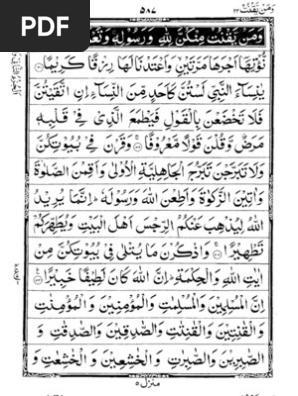 PDF
وَمَنْ يَّقْنُتْ ٢٢
٥٨٧
وَمَنْ يَّقْنُتْ مِنْكُنَّ لِلّٰهِ وَرَسُوْلِهٖ وَتَعْمَلْ
نُّؤْتِهَآ اَجْرَهَا مَرَّتَيْنِ وَاَعْتَدْنَا لَهَا رِزْقًا كَرِيْمًا
يٰنِسَآءَ النَّبِيِّ لَسْتُنَّ كَاَحَدٍ مِّنَ النِّسَآءِ اِنِ اتَّقَيْتُنَّ
فَلَا تَخْضَعْنَ بِالْقَوْلِ فَيَطْمَعَ الَّذِيْ فِيْ قَلْبِهٖ
مَرَضٌ وَّقُلْنَ قَوْلًا مَّعْرُوْفًا وَقَرْنَ فِيْ بُيُوْتِكُنَّ
وَلَا تَبَرَّجْنَ تَبَرُّجَ الْجَاهِلِيَّةِ الْاُوْلٰى وَاَقِمْنَ الصَّلٰوةَ
وَاٰتِيْنَ الزَّكٰوةَ وَاَطِعْنَ اللّٰهَ وَرَسُوْلَهٗ اِنَّمَا يُرِيْدُ
اللّٰهُ لِيُذْهِبَ عَنْكُمُ الرِّجْسَ اَهْلَ الْبَيْتِ وَيُطَهِّرَكُمْ
تَطْهِيْرًا وَاذْكُرْنَ مَا يُتْلٰى فِيْ بُيُوْتِكُنَّ مِنْ
اٰيٰتِ اللّٰهِ وَالْحِكْمَةِ اِنَّ اللّٰهَ كَانَ لَطِيْفًا خَبِيْرًا
اِنَّ الْمُسْلِمِيْنَ وَالْمُسْلِمٰتِ وَالْمُؤْمِنِيْنَ وَالْمُؤْمِنٰتِ
وَالْقٰنِتِيْنَ وَالْقٰنِتٰتِ وَالصّٰدِقِيْنَ وَالصّٰدِقٰتِ وَ
الصّٰبِرِيْنَ وَالصّٰبِرٰتِ وَالْخٰشِعِيْنَ وَالْخٰشِعٰتِ وَ
منزل ٥